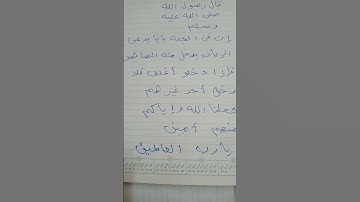 قال رسول الله
صلى الله عليه
وسلم
إن في الجنة بابا يدعى
الريان يدخل منه الصائمون
فإذا دخلو أغلق فلا
يدخل أحد غيرهم
جعلنا الله وإياكم
منهم أمين
يارب العالمين